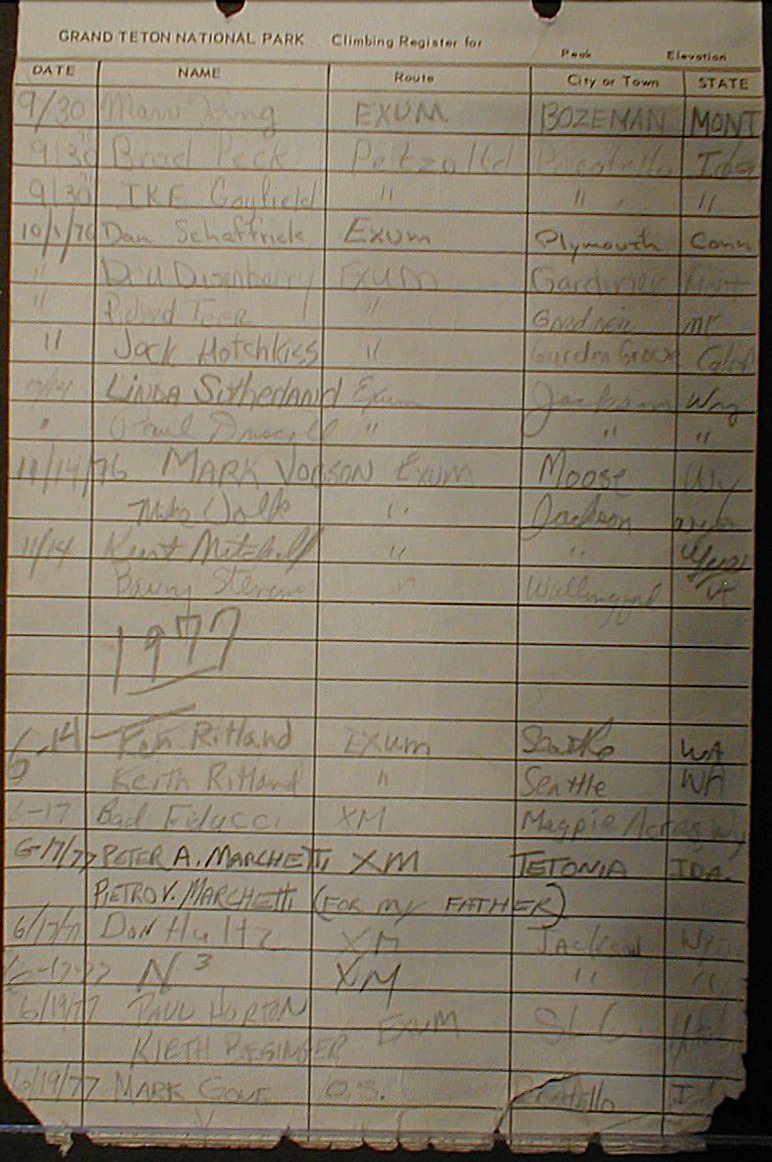 GRAND TETON NATIONAL PARK Climbing Register for Peak Elevation
DATE NAME Route City or Town STATE
9/30 EXUM BOZEMAN MONT
9/30 Brad Peck Petzoltd Pocatello Ida
9/30 IKE Gayfield " " "
10/1/76 Dan Schaffrick Exum Plymouth Conn
" Exum Gardiner Mont
" "
" Jack Hotchkiss " Garden Grove Calif
LINDA Sutherland Exum Jackson Wy
" Paul Driscoll " " "
11/14/76 MARK VORSON EXUM Moose Wy
Mike " Jackson
11/14 Kurt Mitchell " "
Barry Stevens " Wallingford Vt
1977
6-14 Ken Ritland EXUM Seattle WA
Keith Ritland " Seattle WA
6-17 Bad Fiducci XM Magpie Acres Wy
6-17/77 PETER A. MARCHETTI XM TETONIA IDA.
PIETRO V. MARCHETTI (FOR MY FATHER)
6/17/77 Don Hultz XM Jackson Wyo
6-17-77 N³ XM " "
6/19/77 PAUL HORTON EXUM SLC, Utah
KIETH BEGINGER
6/19/77 MARK GOUE O.S. Pocatello Ida